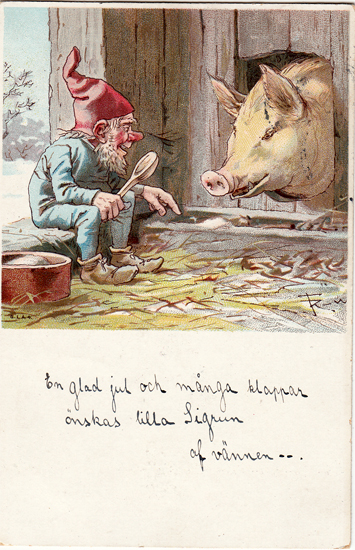 En glad jul och många klappar
önskas lilla Sigrun
af vännen --.